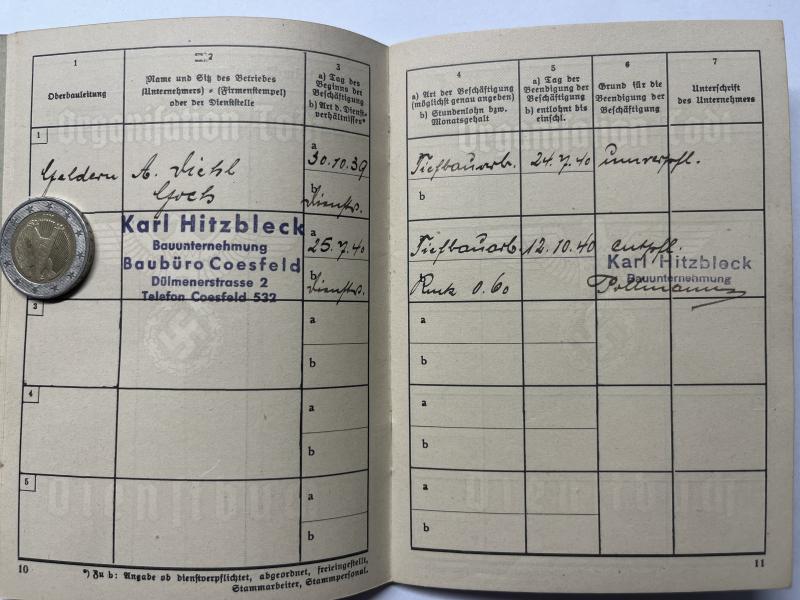 1
2
3
Oberbauleitung
Name und Sitz des Betriebes
(Unternehmers) * (Firmenstempel)
oder der Dienststelle
a) Tag des
Beginns der
Beschäftigung
b) Art d. Dienst-
verhältnisses*
Organisation Todt
1
Geldern
A. Diehl
Goch
a
30.10.39
b
Dienstv.
Karl Hitzbleck
Bauunternehmung
Baubüro Coesfeld
Dülmenerstrasse 2
Telefon Coesfeld 532
a
25.7.40
b
Dienstv.
3
a
b
4
a
b
5
a
b
Dienstbuch
10
*) Zu b: Angabe ob dienstverpflichtet, abgeordnet, freieingestellt,
Stammarbeiter, Stammpersonal.
4
5
6
7
a) Art der Beschäftigung
(möglichst genau angeben)
b) Stundenlohn bzw.
Monatsgehalt
a) Tag der
Beendigung der
Beschäftigung
b) entlohnt bis
einschl.
Grund für die
Beendigung der
Beschäftigung
Unterschrift
des Unternehmers
Organisation Todt
a
Tiefbauarb.
24.7.40
umverpfl.
b
Tiefbauarb.
12.10.40
entpfl.
0.60
Karl Hitzbleck
Bauunternehmung
Pollmann
a
b
a
b
a
b
Dienstbuch
11